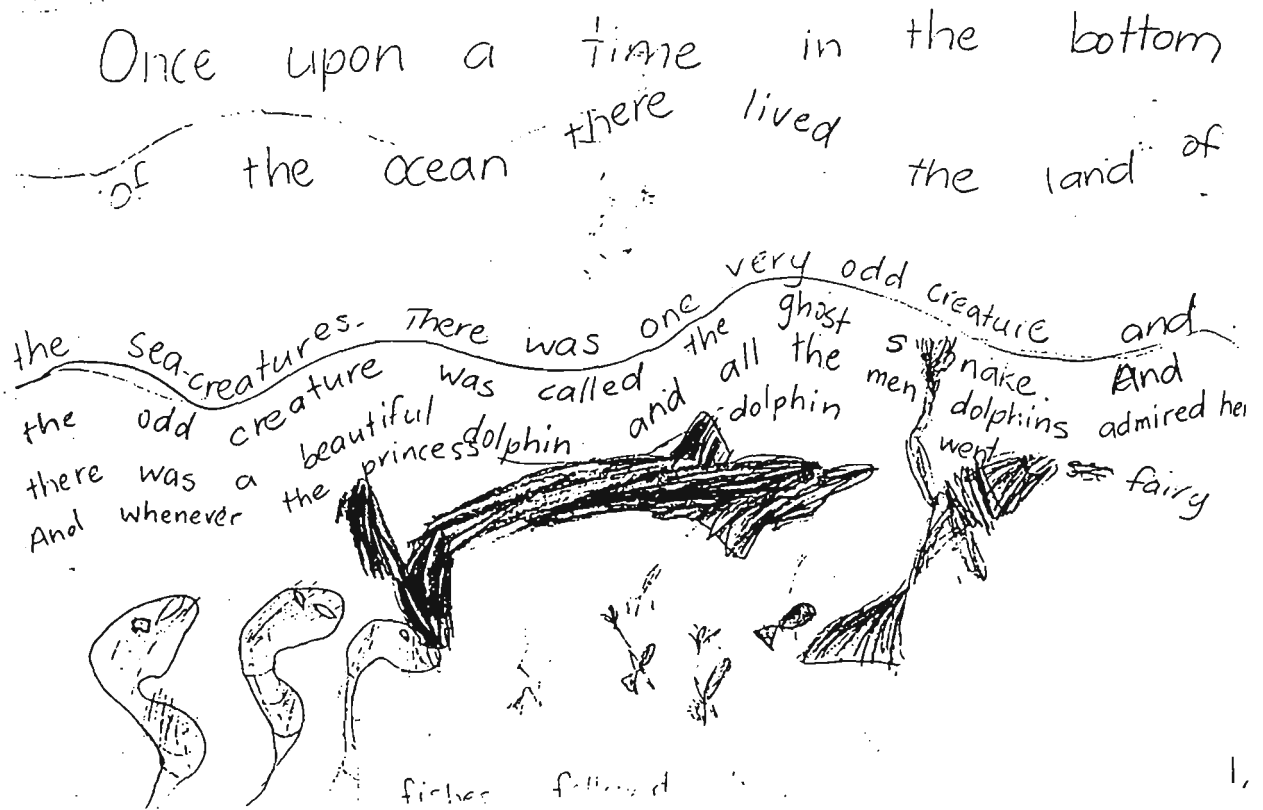 Once upon a time in the bottom
of the ocean there lived the land of
the sea-creatures. There was one very odd creature and
the odd creature was called the ghost snake. And
there was a beautiful dolphin and all the men dolphins admired her
And whenever the princess dolphin went fairy
fishes followed
1,